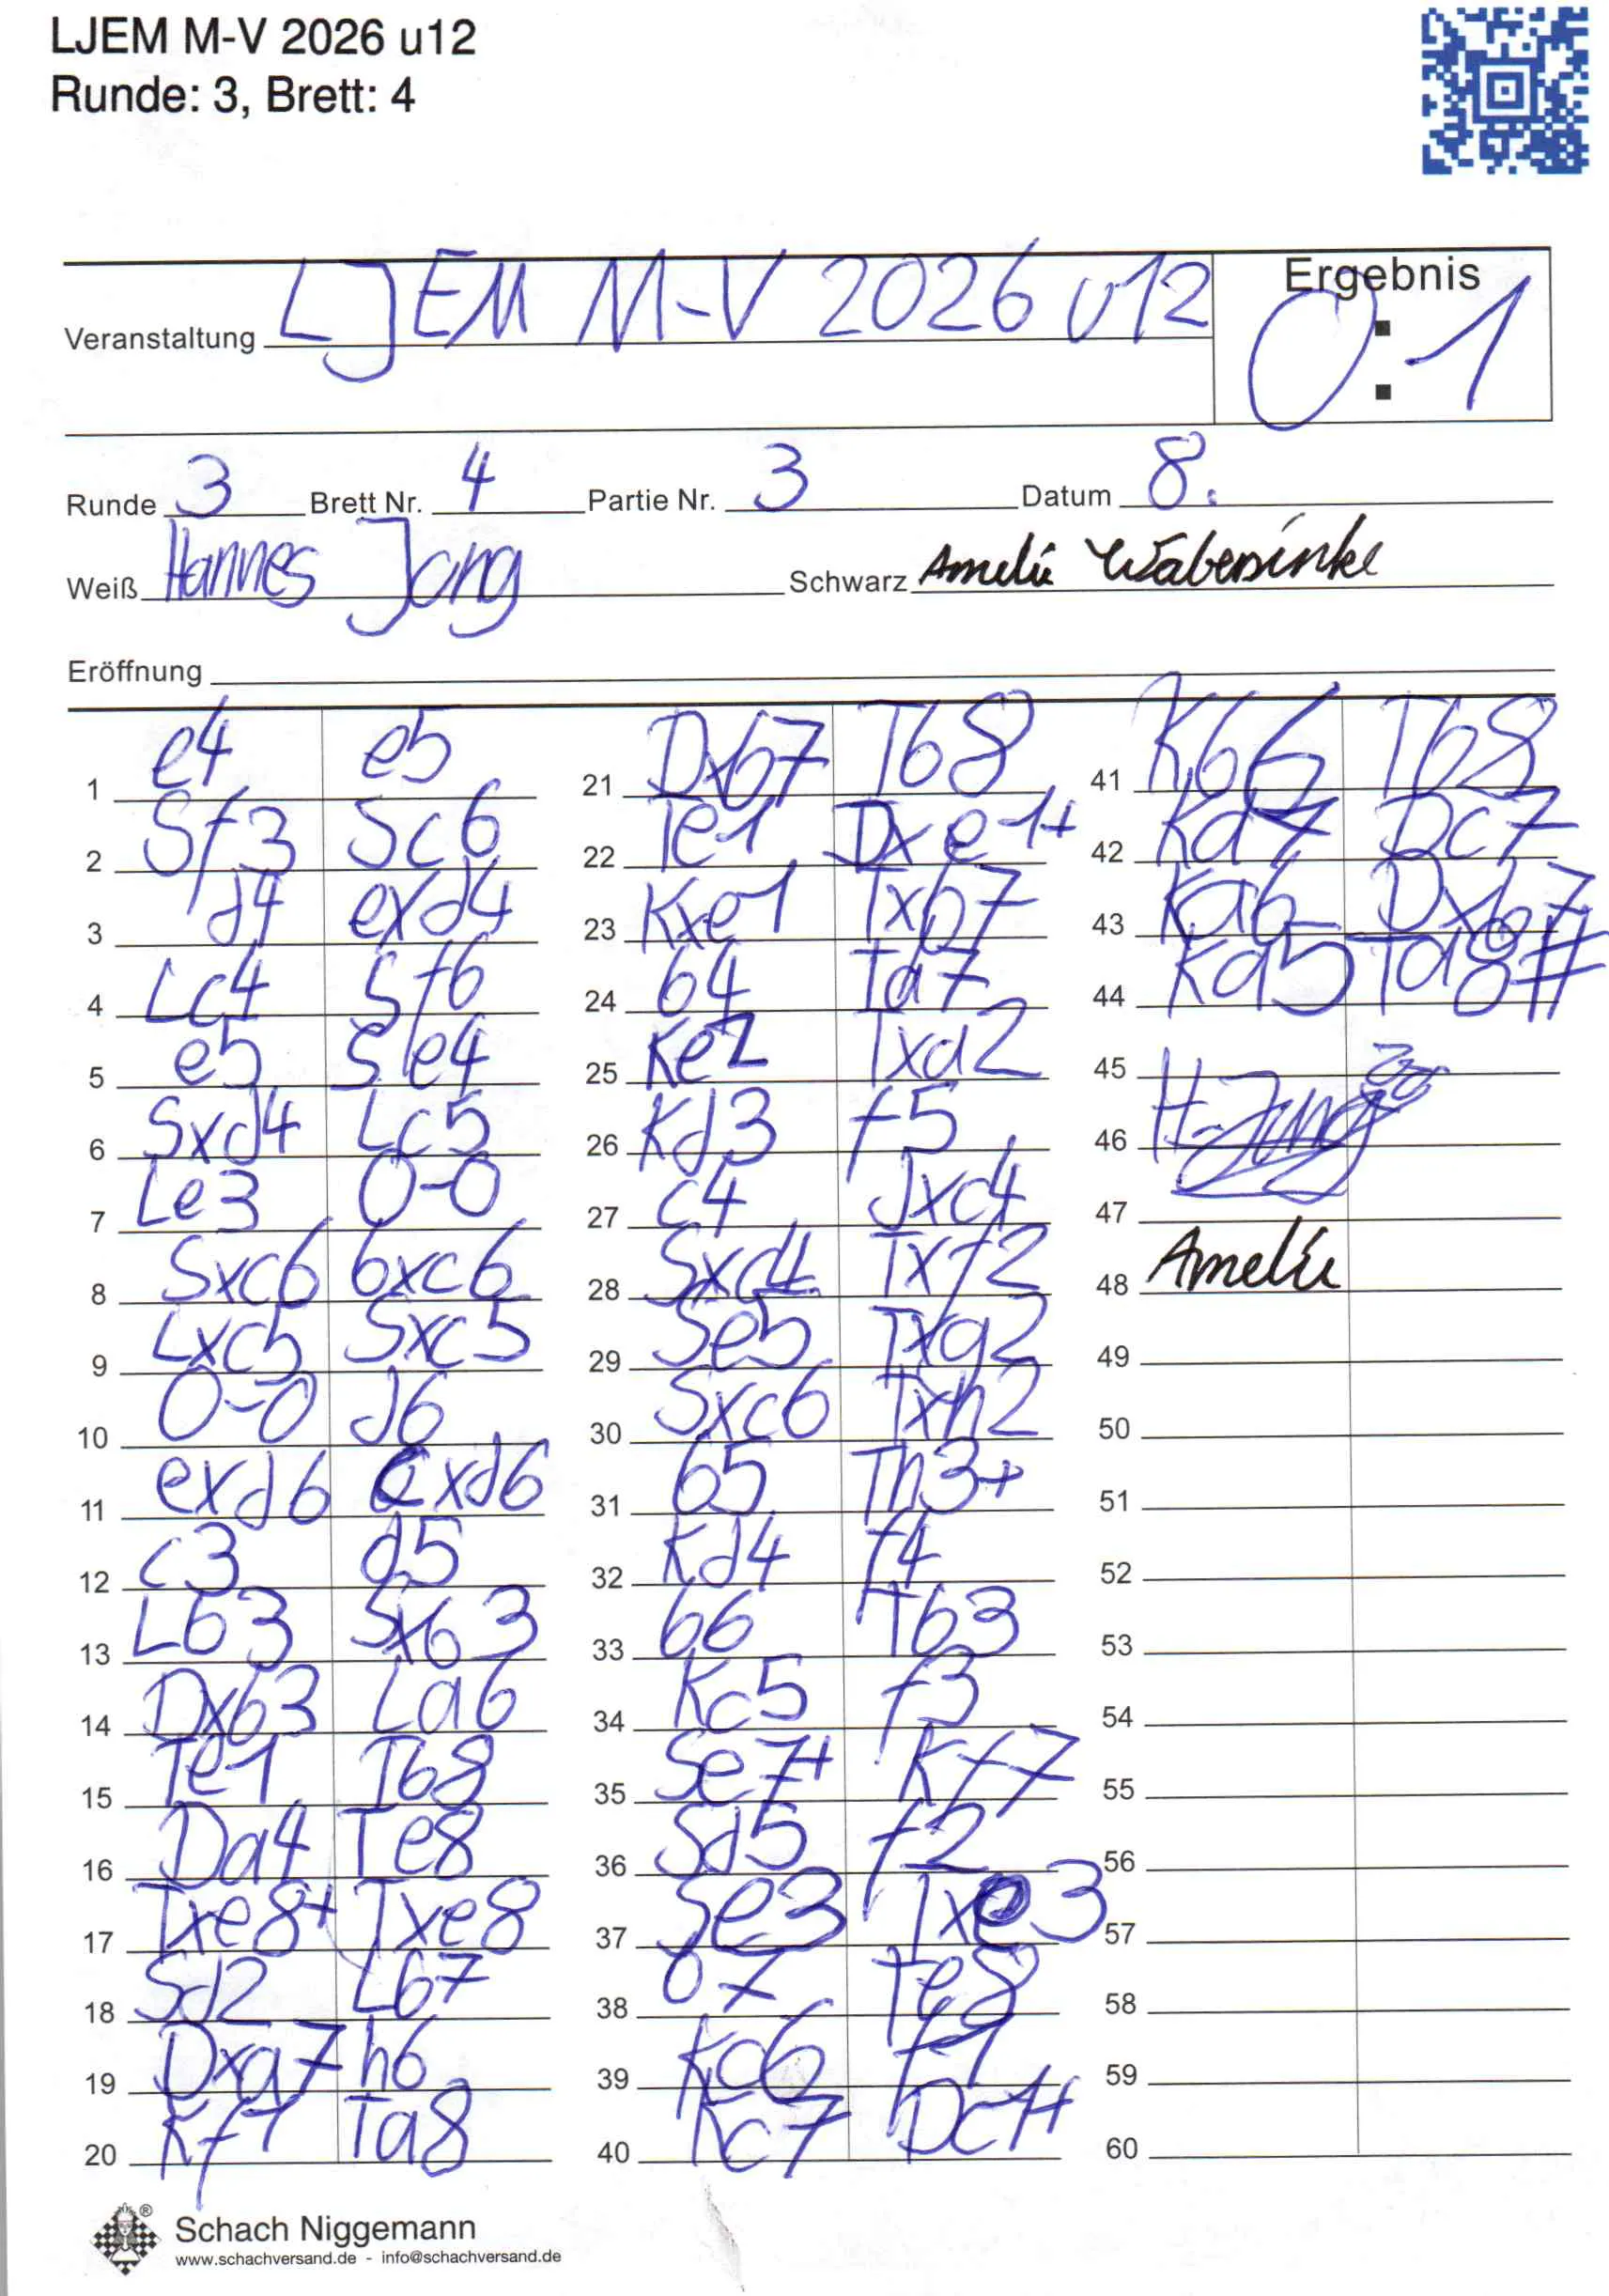 LJEM M-V 2026 u12
Runde: 3, Brett: 4
Veranstaltung LJEM M-V 2026 u12
Ergebnis
0:1
Runde 3 Brett Nr. 4 Partie Nr. 3 Datum 8.
Weiß Hannes Jong Schwarz Amelie
Eröffnung
1 e4 e5
2 Sf3 Sc6
3 d4 exd4
4 Lc4 Sf6
5 e5 Se4
6 Sxd4 Lc5
7 Le3 0-0
8 Sxc6 bxc6
9 Lxc5 Sxc5
10 0-0 d6
11 exd6 cxd6
12 c3 d5
13 Lb3 Sxb3
14 Dxb3 La6
15 Te1 Tb8
16 Da4 Te8
17 Txe8+ Txe8
18 Sd2 Lb7
19 Dxa7 h6
20 Kf1 Ta8
21 Dxb7 Tb8
22 Te1 Dxe1+
23 Kxe1 Txb7
24 b4 Ta7
25 Ke2 Txa2
26 Kd3 f5
27 c4 dxc4
28 Sxc4 Txf2
29 Se5 Txg2
30 Sxc6 Txh2
31 b5 Th3+
32 Kd4 f4
33 b6 Tb3
34 Kc5 f3
35 Se7+ Kf7
36 Sd5 f2
37 Se3 Txe3
38 b7 Te8
39 Kc6 f1
40 Kc7 Dc4+
41 Kb6 Tb8
42 Ka7 Dc7
43 Ka6 Dxb7
44 Ka5 Ta8#
45
46 H. Jung
47
48 Amelie
49
50
51
52
53
54
55
56
57
58
59
60
Schach Niggemann
www.schachversand.de - info@schachversand.de